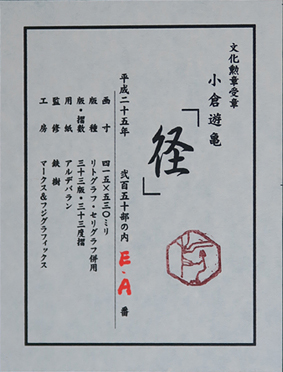 文化勲章受章
小倉遊亀
「径」
平成二十五年 弐百五十部の内 E.A 番
画寸 四一五×五三〇ミリ
版種 リトグラフ・セリグラフ併用
版・摺数 三十三版・三十三度摺
用紙 アルデバラン
監修 鉄樹
工房 マークス&フジグラフィックス